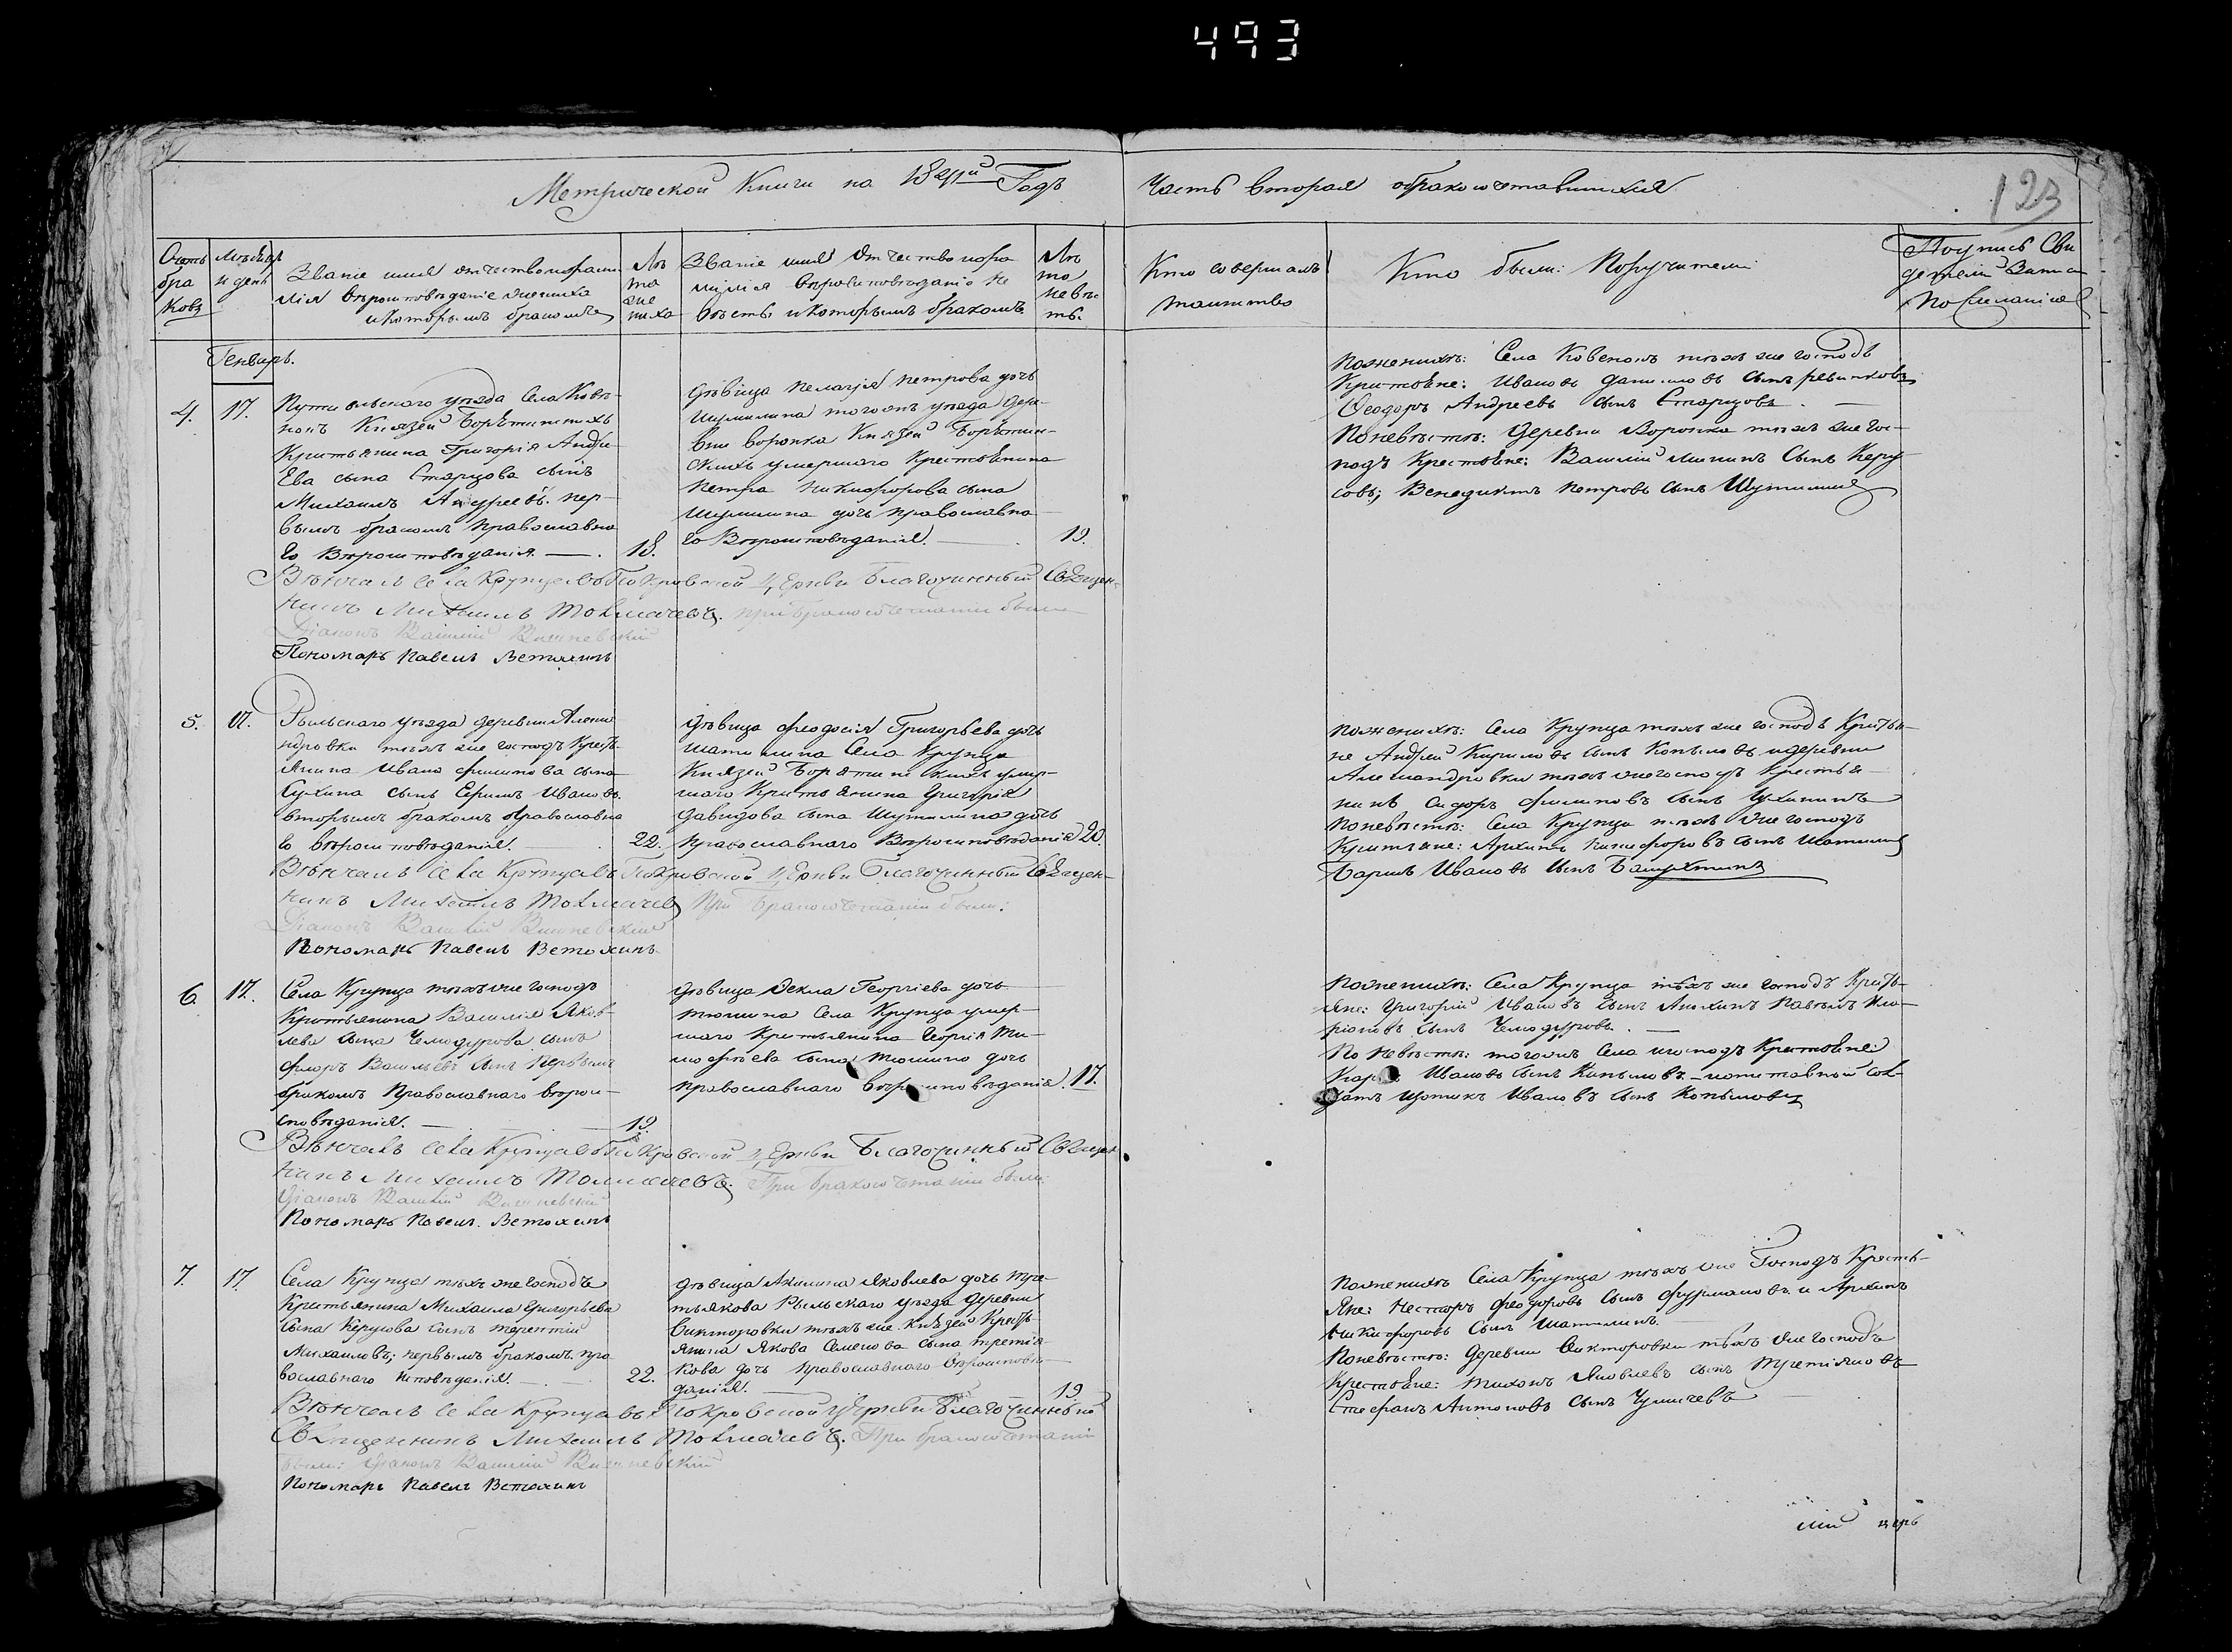 493
Метрической Книги на 1841й Годъ
Часть вторая о бракосочетавшихся
123
Счетъ бра ковъ
Мѣсяцъ и день
Званіе имя отчество и фами
лія вѣроисповѣданіе жениха
и которымъ бракомъ
Лѣ та же ниха
Званіе имя отчество и фа
милія вѣроисповѣданіе не
вѣсты и которымъ бракомъ
Лѣ та невѣс ты.
Кто совершалъ
таинство
Кто были Поручители
Подпись Сви
детелей Записи
по желанію
Генварь.
4. 17.
Путивльскаго уѣзда Села Кове-
нокъ Князей Борятинскихъ
Крестьянина Григорія Андре-
ева сына Старцова сынъ
Михаилъ Андреевъ. пер-
вымъ бракомъ православна
го Вѣроисповѣданія. 18.
дѣвица Пелагія Петрова дочь
Шумилина тогожъ уѣзда дере-
вни Воронка Князей Борятин-
скихъ умершаго Крестьянина
Петра Никифорова сына
Шумилина дочь православна
го Вѣроисповѣданія. 19.
Поженихѣ: Села Ковенокъ тѣхъ же господъ
Крестьяне: Иванъ Даниловъ сынъ
Ѳеодоръ Андреевъ сынъ Старцовъ.
Поневѣстѣ: Деревни Воронка тѣхъ же гос-
подъ Крестьяне: Василій Мининъ Сынъ Керу
совъ; Венедиктъ Петровъ сынъ
Вѣнчалъ села Крупца Покровской Церкви Благочинный Священ-
никъ Михаилъ Толмачевъ. при бракосочетаніи были
Діаконъ Василій Вишневскій
Пономарь Павелъ Ветохинъ
5. 17.
Рыльскаго уѣзда деревни Алекса
ндровки тѣхъ же господъ Крест-
янина Ивана Филипова сына
Чухина сынъ Ефимъ Ивановъ.
вторымъ бракомъ Православна
го вѣроисповѣданія. 22.
дѣвица Феодосія Григорьева дочь
Шатилина Села Крупца
Князей Борятинскихъ умер-
шаго Крестьянина Григорія
Давидова сына дочь
Православнаго Вѣроисповѣданія 20.
Поженихѣ: Села Крупца тѣхъ же господъ Крестья-
не Андрей Кириловъ сынъ Копыловъ и деревни
Александровки тѣхъ же господъ Крестья-
нинъ Сидоръ Филиповъ сынъ Чухинъ
Поневѣстѣ: Села Крупца тѣхъ же господъ
Крестьяне: Архипъ Никифоровъ сынъ Шатилинъ
Ивановъ сынъ
Вѣнчалъ села Крупца Покровской Церкви Благочинный Священ-
никъ Михаилъ Толмачевъ При Бракосочетаніи были:
Діаконъ Василій Вишневскій
Пономарь Павелъ Ветохинъ.
6 17.
Села Крупца тѣхъ же господъ
Крестьянина Василія Яков-
лева сына Чемодурова сынъ
Флоръ Васильевъ сынъ Первымъ
бракомъ Православнаго вѣрои-
сповѣданія. 19.
дѣвица Ѳекла Георгіева дочь
Тюшина Села Крупца умер-
шаго Крестьянина Георгія Ти-
мофѣева сына Тюшина дочь
православнаго вѣроисповѣданія. 17.
Поженихѣ: Села Крупца тѣхъ же господъ Кресть-
яне: Григорій Ивановъ сынъ Павелъ Ила-
ріоновъ сынъ Чемодуровъ.
По Невѣстѣ: тогожъ Села и господъ Крестьяне:
Ивановъ сынъ Копыловъ и отставной сол-
датъ Ивановъ сынъ Копыловъ
Вѣнчалъ села Крупца Покровской Церкви Благочинный Священ
никъ Михаилъ Толмачевъ. При бракосочетаніи были:
Діаконъ Василій Вишневскій
Пономарь Павелъ Ветохинъ
7. 17
Села Крупца тѣхъ же господъ
Крестьянина Михаила Григорьева
сына Керусова сынъ Терентій
Михаиловъ; первымъ бракомъ. пра
вославнаго исповѣданія. 22.
дѣвица Акилина Яковлева дочь Тре-
тьякова Рыльскаго уѣзда деревни
Викторовки тѣхъ же Князей Кресть-
янина Якова Семенова сына Третья-
кова дочь православнаго вѣроисповѣ-
данія. 19
Поженихѣ Села Крупца тѣхъ же Господъ Кресть-
яне: Несторъ Феодоровъ сынъ Фурмановъ и Архипъ
Никифоровъ Сынъ Шатилинъ.
Поневѣстѣ: деревни Викторовки тѣхъ же господъ
Крестьяне: Тихонъ Яковлевъ сынъ Третьяковъ
Стефанъ Антоновъ сынъ
Вѣнчалъ села Крупца Покровской Церкви Благочинный
Священникъ Михаилъ Толмачевъ. При бракосочетаніи
были: Діаконъ Василій Вишневскій
Пономарь Павелъ Ветохинъ